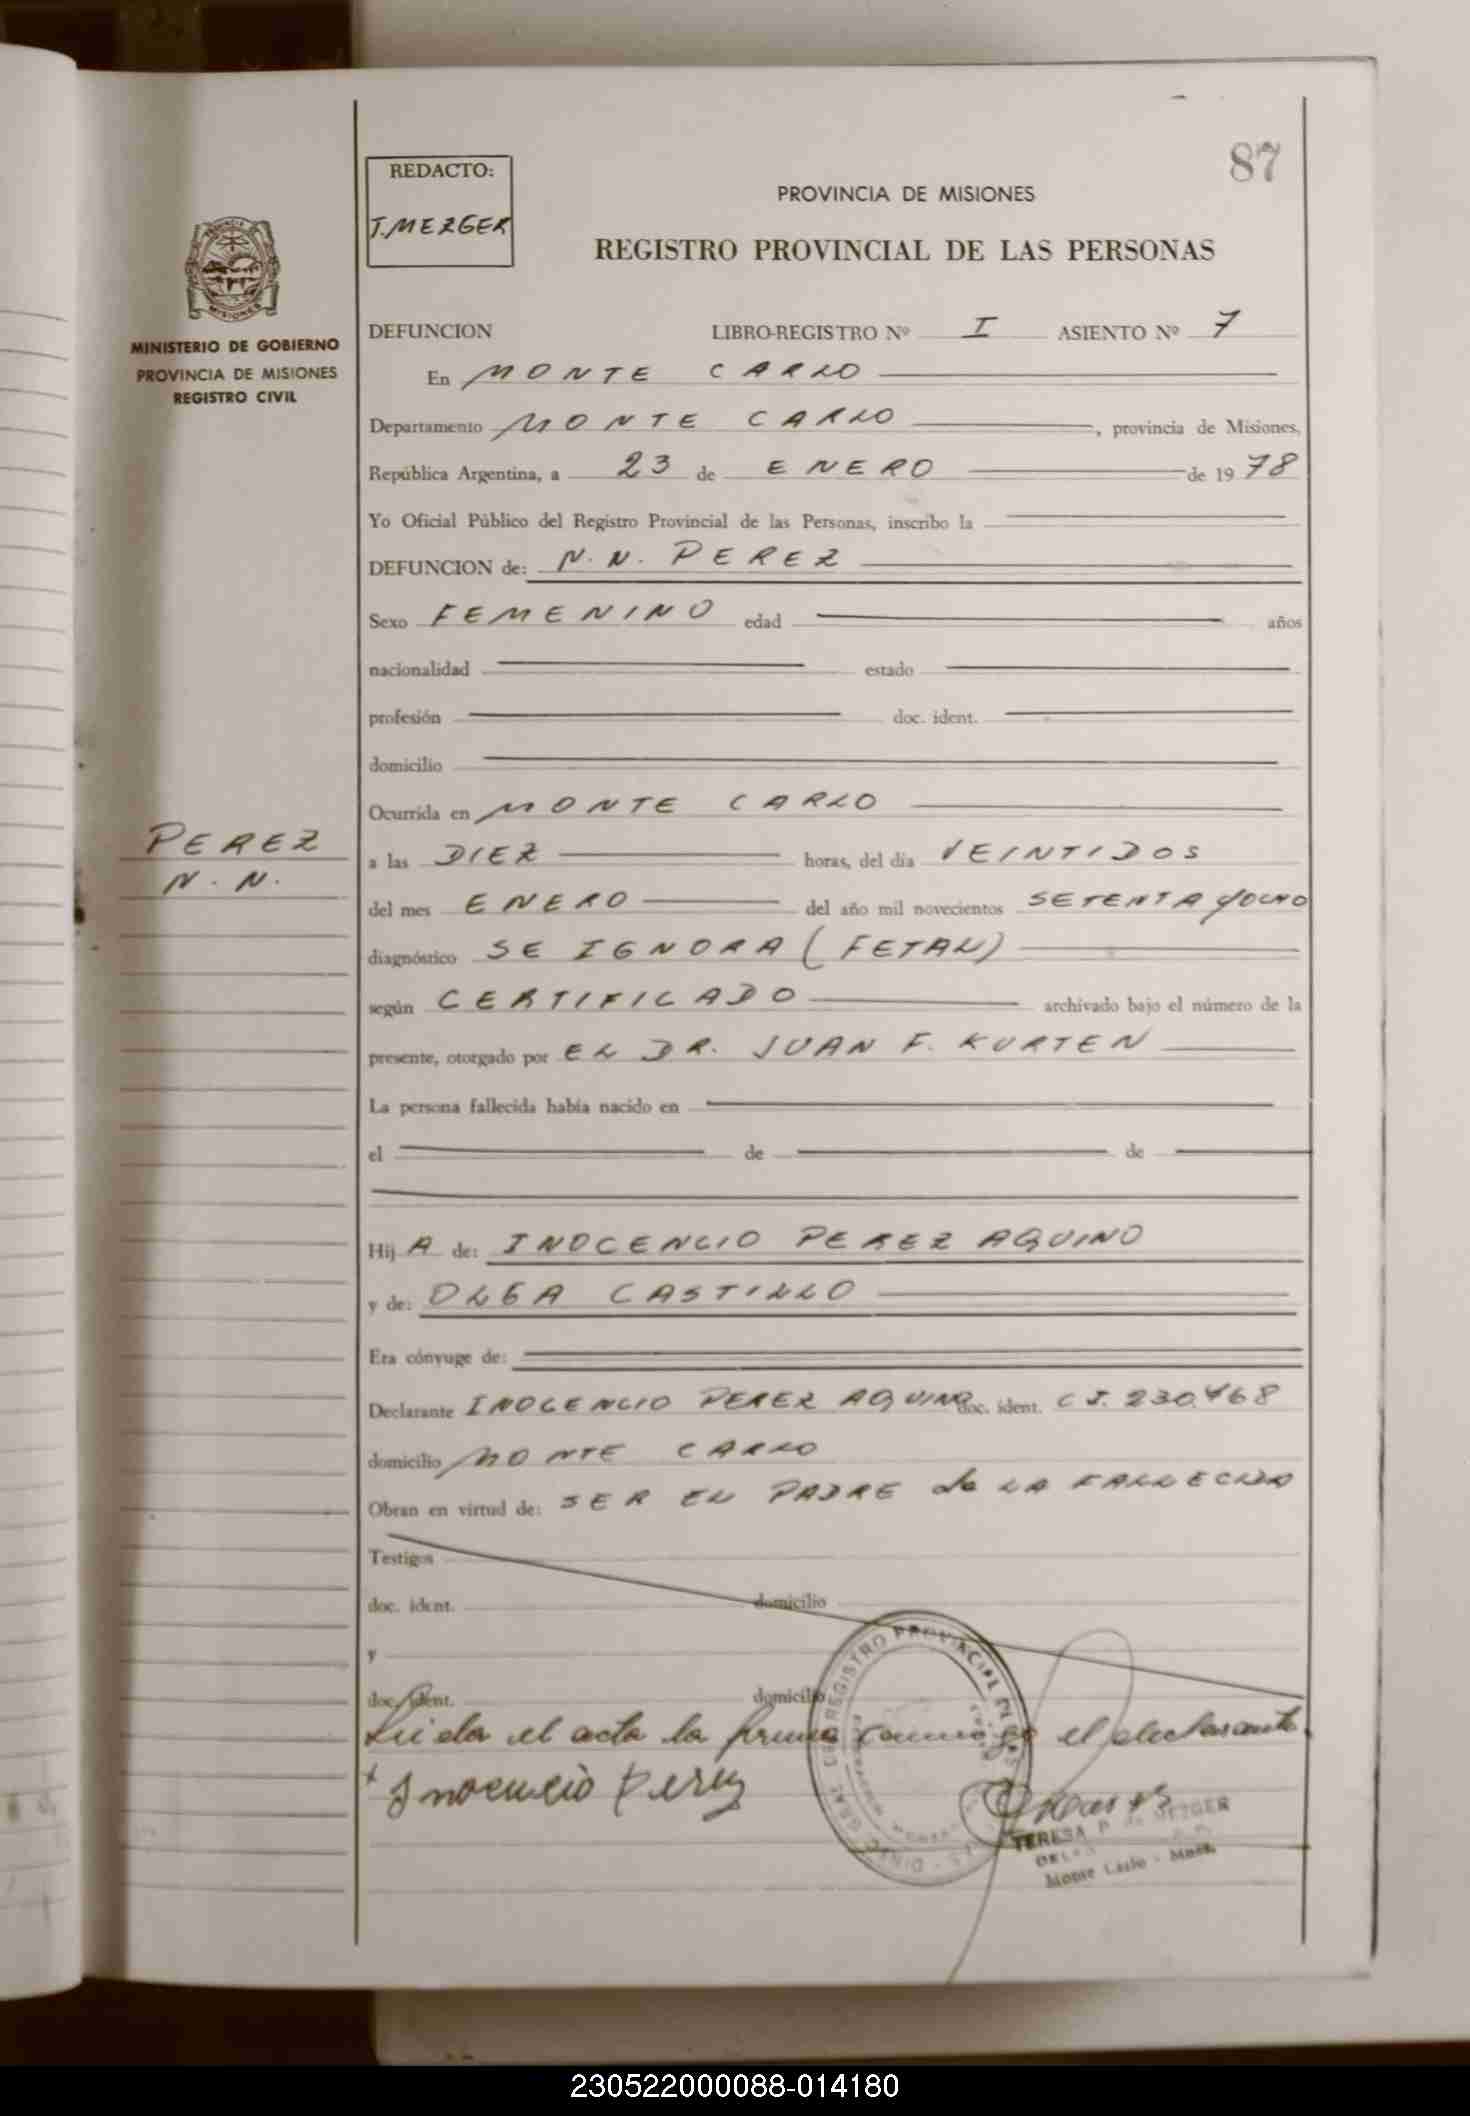 87
REDACTO:
T. MEZGER
PROVINCIA DE MISIONES
REGISTRO PROVINCIAL DE LAS PERSONAS
MINISTERIO DE GOBIERNO
PROVINCIA DE MISIONES
REGISTRO CIVIL
DEFUNCION LIBRO-REGISTRO Nº I ASIENTO Nº 7
En MONTE CARLO
Departamento MONTE CARLO, provincia de Misiones,
República Argentina, a 23 de ENERO de 1978
Yo Oficial Público del Registro Provincial de las Personas, inscribo la
DEFUNCION de: N. N. PEREZ
Sexo FEMENINO edad años
nacionalidad estado
profesión doc. ident.
domicilio
Ocurrida en MONTE CARLO
PEREZ
N. N.
a las DIEZ horas, del día VEINTIDOS
del mes ENERO del año mil novecientos SETENTA y OCHO
diagnóstico SE IGNORA (FETAL)
según CERTIFICADO archivado bajo el número de la
presente, otorgado por EL DR. JUAN F. KURTEN
La persona fallecida había nacido en
el de de
Hij A de: INOCENCIO PEREZ AQUINO
y de: OLGA CASTILLO
Era cónyuge de:
Declarante INOCENCIO PEREZ AQUINO doc. ident. C I. 230.468
domicilio MONTE CARLO
Obran en virtud de: SER EL PADRE de LA FALLECIDA
Testigos
doc. ident. domicilio
y
doc. ident. domicilio
Leida el acta la firma conmigo el declarante.
Inocencio Perez
REGISTRO PROVINCIAL DE LAS
TERESA P. de MEZGER
Monte Carlo - Mnes.
230522000088-014180